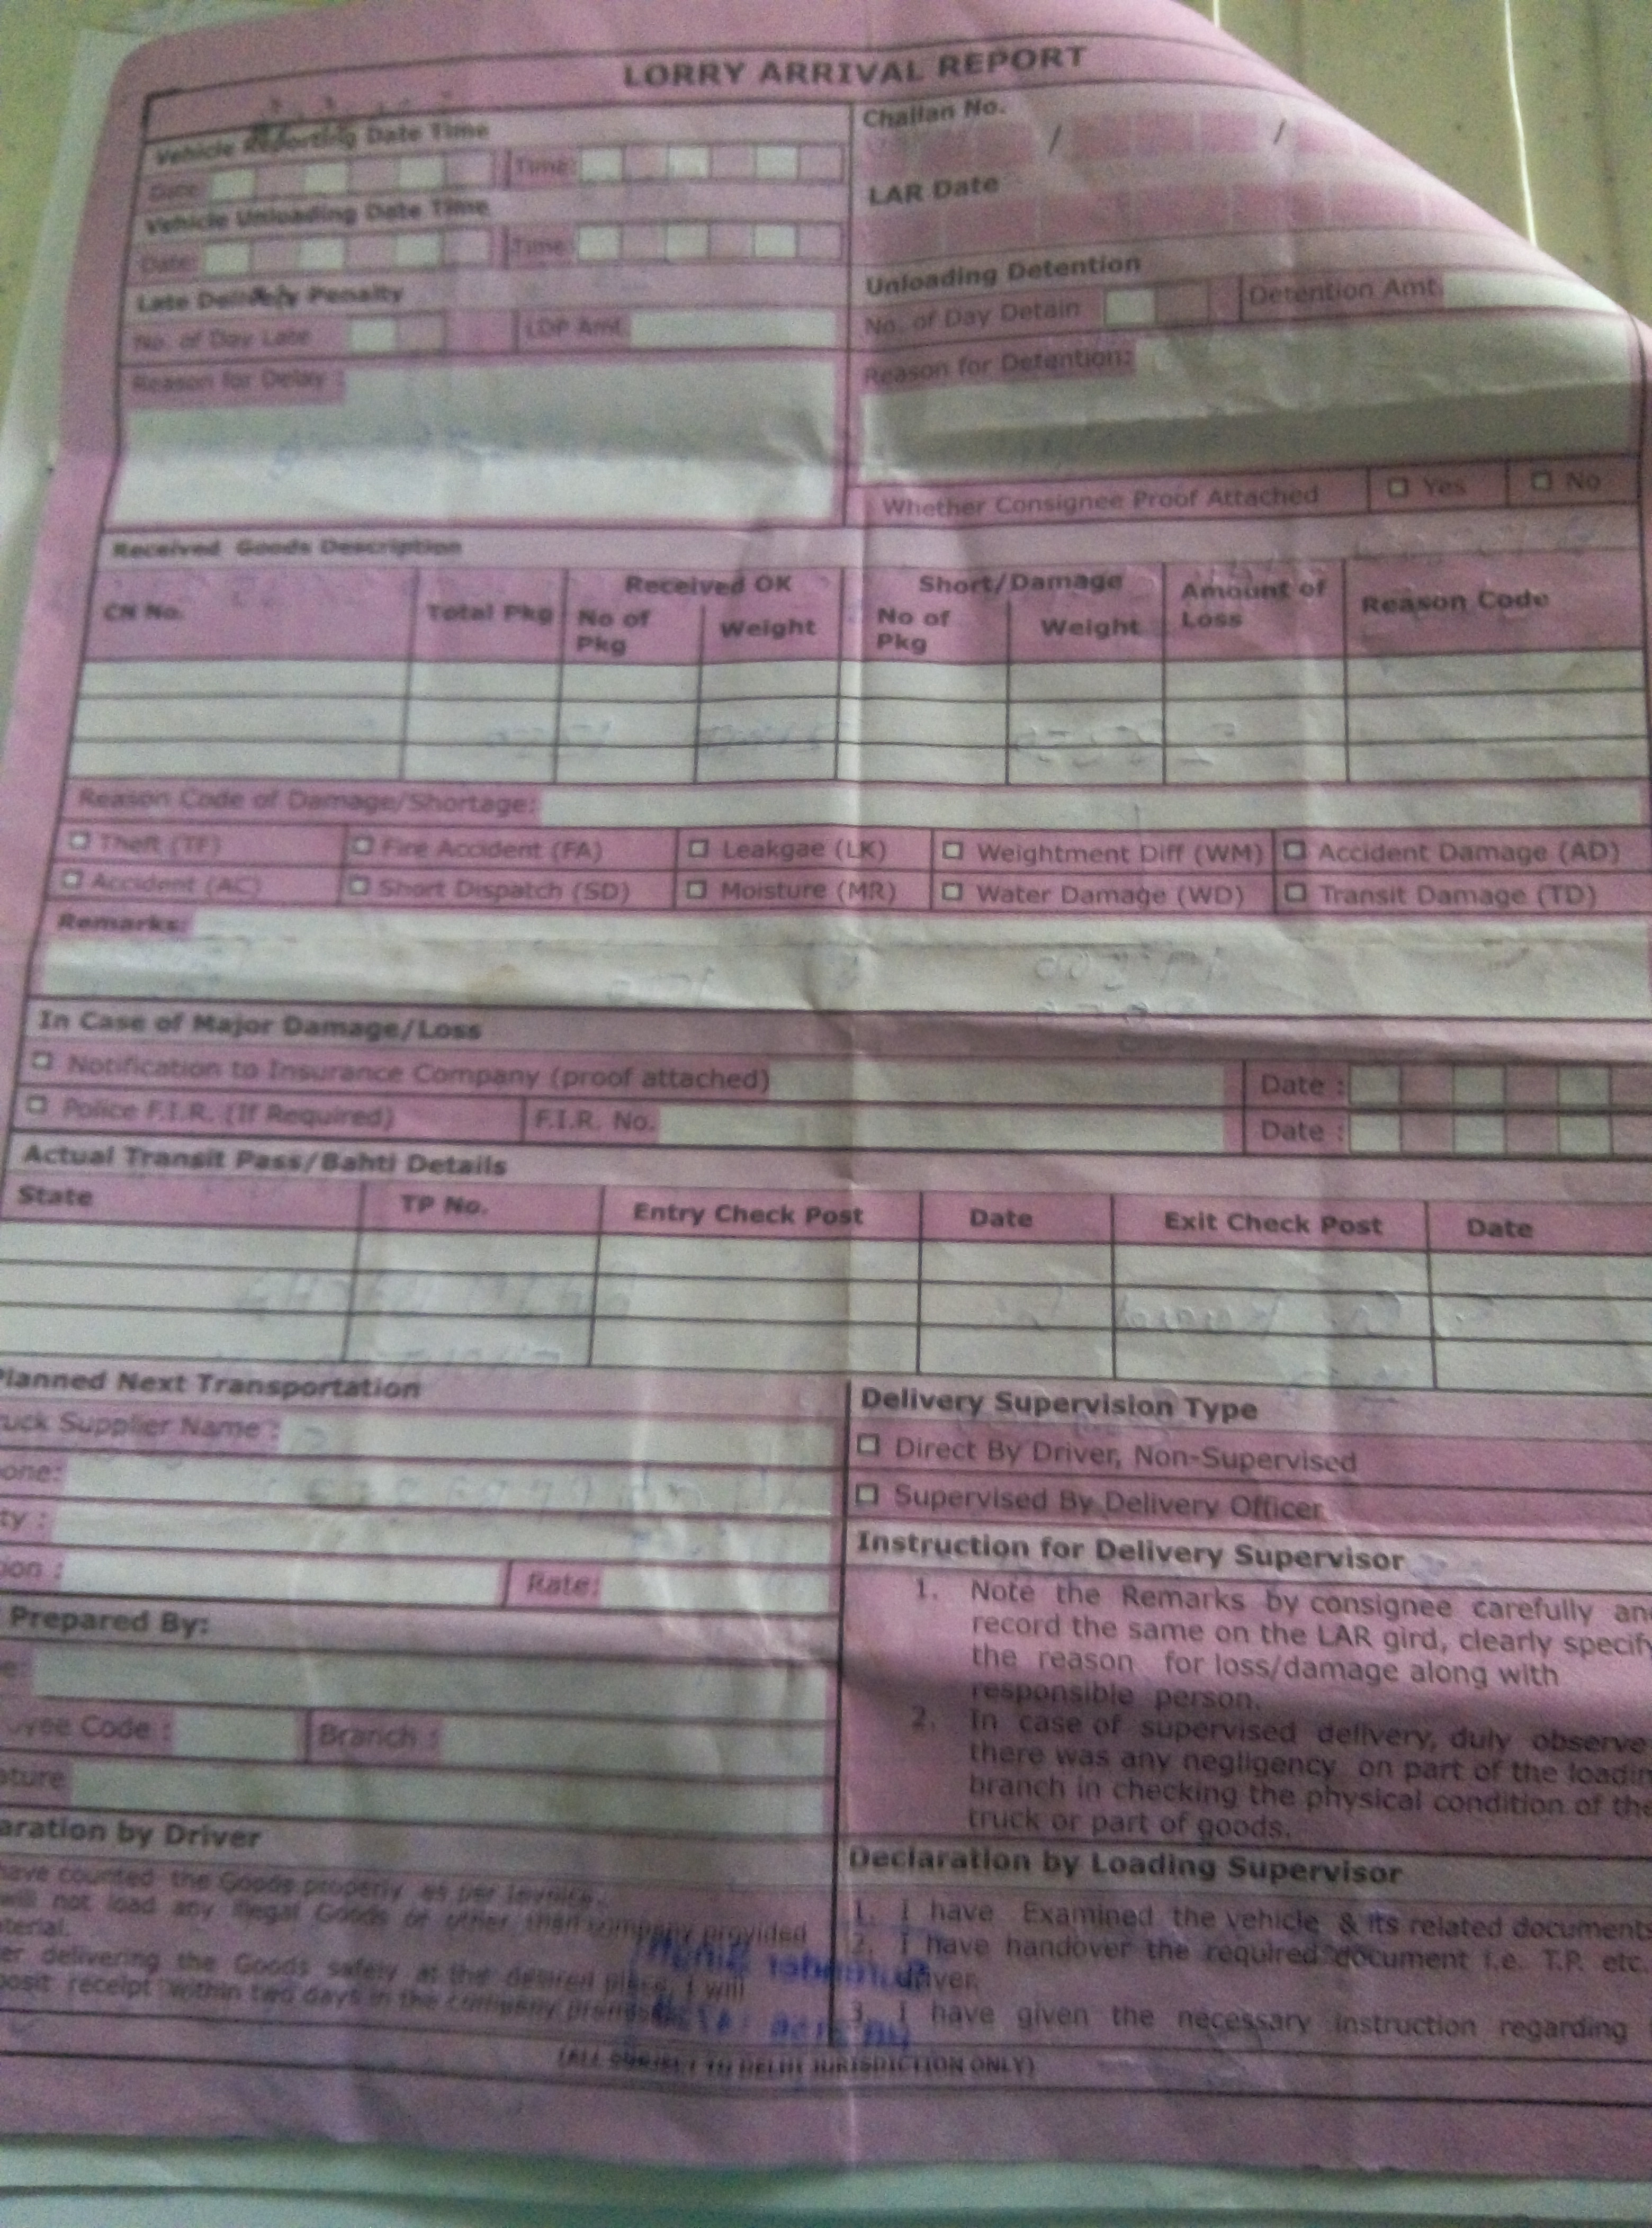 LORRY ARRIVAL REPORT
Vehicle Reporting Date Time
Date: Time:
Vehicle Unloading Date Time
Date: Time:
Late Delivery Penalty
No. of Day Late LDP Amt.
Reason for Delay :
Challan No.
/ /
LAR Date
Unloading Detention
No. of Day Detain Detention Amt.
Reason for Detention:
Whether Consignee Proof Attached Yes No
Received Goods Description
CN No. Total Pkg Received OK Short/Damage Amount of Loss Reason Code
No of Pkg Weight No of Pkg Weight
Reason Code of Damage/Shortage:
Theft (TF) Fire Accident (FA) Leakgae (LK) Weightment Diff (WM) Accident Damage (AD)
Accident (AC) Short Dispatch (SD) Moisture (MR) Water Damage (WD) Transit Damage (TD)
Remarks:
In Case of Major Damage/Loss
Notification to Insurance Company (proof attached) Date :
Police F.I.R. (If Required) F.I.R. No. Date :
Actual Transit Pass/Bahti Details
State TP No. Entry Check Post Date Exit Check Post Date
Planned Next Transportation
uck Supplier Name :
one:
ty :
ion : Rate:
Prepared By:
e:
yee Code : Branch :
ature
aration by Driver
have counted the Goods properly as per Invoice.
will not load any illegal Goods or other than company provided
terial.
er delivering the Goods safely at the desired place, I will
posit receipt within two days in the company
Delivery Supervision Type
Direct By Driver, Non-Supervised
Supervised By Delivery Officer
Instruction for Delivery Supervisor
1. Note the Remarks by consignee carefully an
record the same on the LAR gird, clearly specify
the reason for loss/damage along with
responsible person.
2. In case of supervised delivery, duly observe
there was any negligency on part of the loadin
branch in checking the physical condition of the
truck or part of goods.
Declaration by Loading Supervisor
1. I have Examined the vehicle & its related documents
2. I have handover the required document i.e. T.P. etc.
driver.
3. I have given the necessary instruction regarding
(ALL SUBJECT TO DELHI JURISDICTION ONLY)